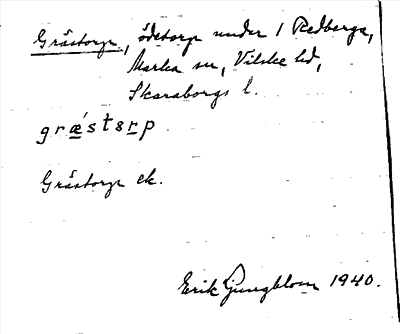 Gråstorp, ödetorp under 1 Redberga,
Marka sn, Vilske hd,
Skaraborgs l.
græ´stsrp
Gråstorp ek.
Erik Ljungblom 1940.